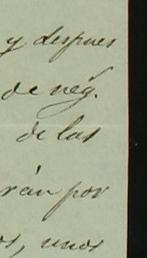 y despues
de neg.
de las
rán por
os, unos